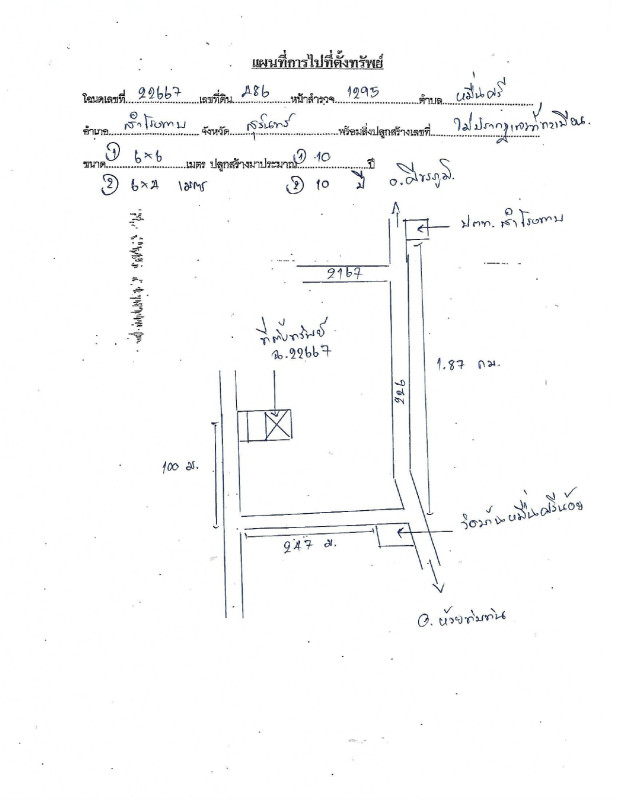 แผนที่การไปที่ตั้งทรัพย์
โฉนดเลขที่ 22667 เลขที่ดิน 486 หน้าสำรวจ 1295 ตำบล หมื่นศรี
อำเภอ สำโรงทาบ จังหวัด สุรินทร์ พร้อมสิ่งปลูกสร้างเลขที่ ไม่ปรากฏเลขทะเบียน
ขนาด ① 6×6 เมตร ปลูกสร้างมาประมาณ ① 10 ปี
② 6×4 เมตร ② 10 ปี
อ.ศีขรภูมิ
ปตท. สำโรงทาบ
2167
ที่ตั้งทรัพย์
ฉ.22667
1.87 กม.
226
100 ม.
วัดบ้านหมื่นศรีน้อย
247 ม.
อ. ห้วยทับทัน